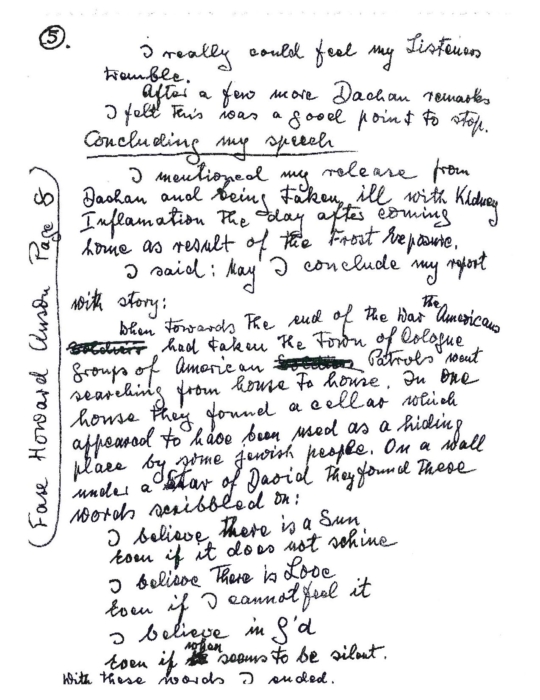 5.
I really could feel my Listeners
tremble.
After a few more Dachau remarks
I felt this was a good point to stop.
Concluding my speech
I mentioned my release from
Dachau and being taken ill with Kidney
Inflamation the day after coming
home as result of the Frost Exposure.
I said: May I conclude my report
with story:
When towards the end of the War the Americans
had taken the Town of Cologne
groups of American Patrols went
searching from house to house. In one
house they found a cellar which
appeared to have been used as a hiding
place by some jewish people. On a wall
under a Star of David they found these
words scribbled on:
I believe there is a Sun
Even if it does not schine
I believe There is Love
Even if I cannot feel it
I believe in G'd
Even if when seems to be silent.
With these words I ended.
Howard Page 8